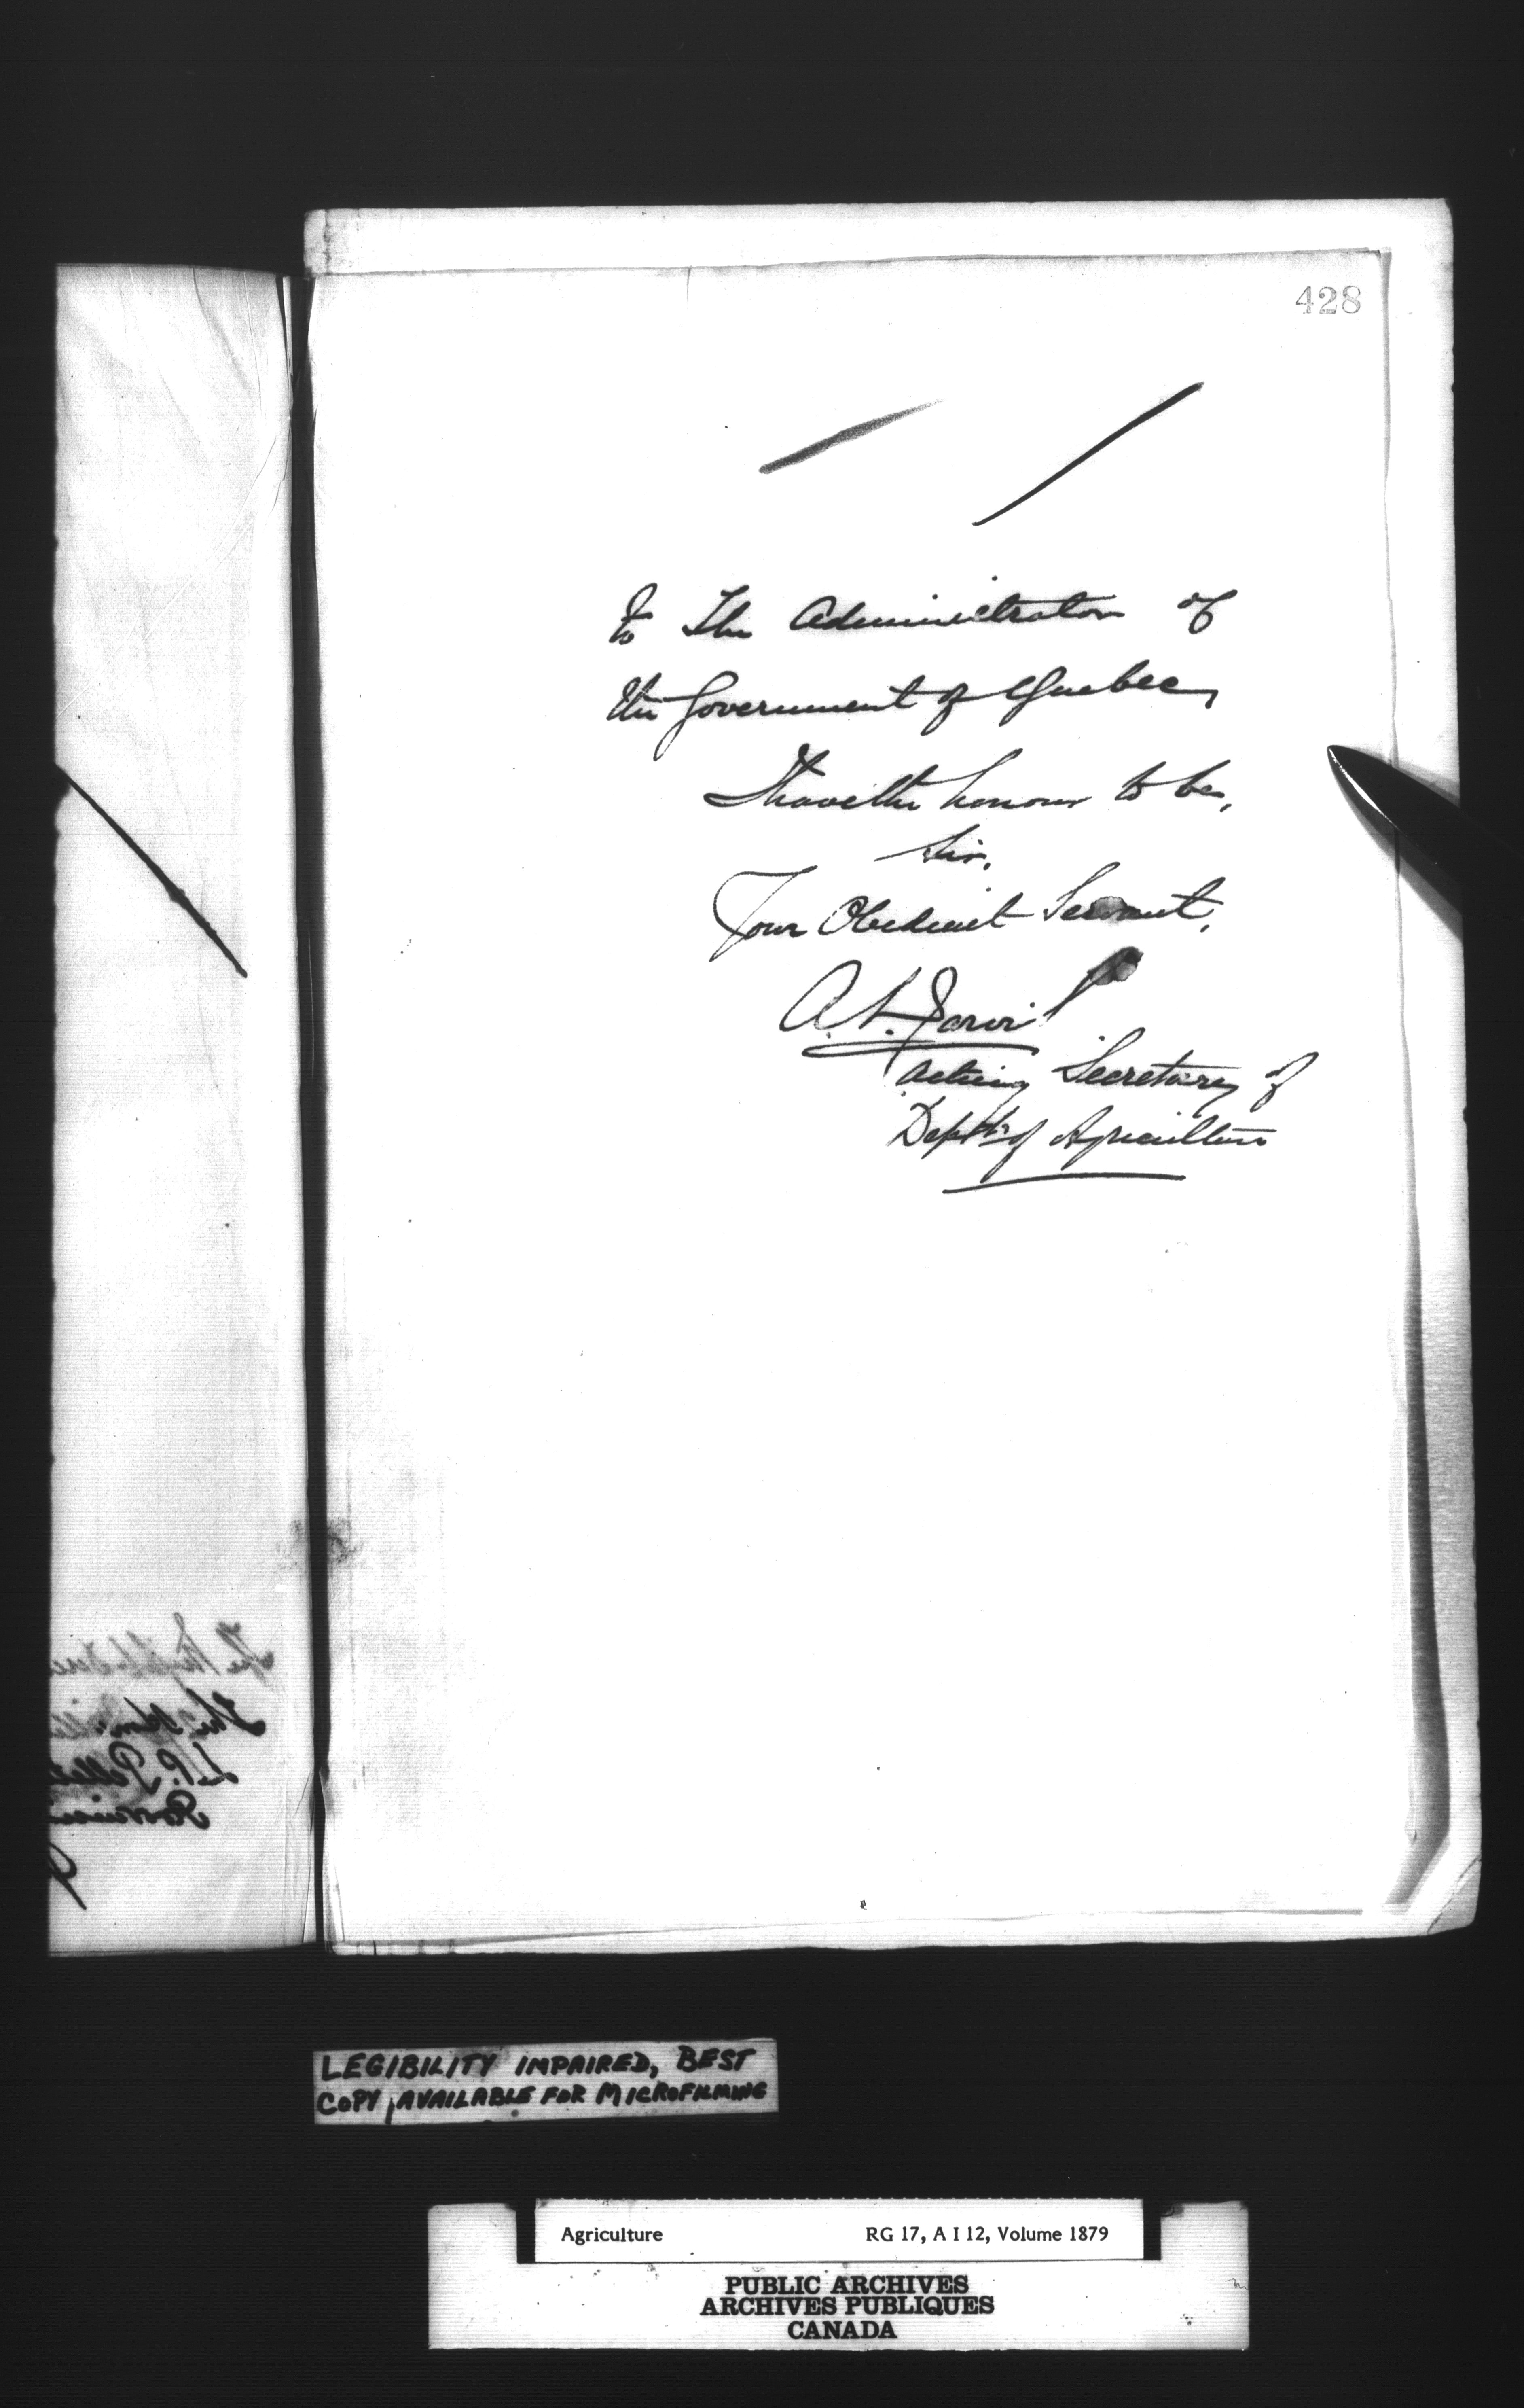 428
to The Administrator of
the Government of Quebec,
I have the honour to be,
Sir,
Your Obedient Servant,
A. L. Jarvis
Acting Secretary of
Dept. of Agriculture
The
The Hon.
L.P.
LEGIBILITY IMPAIRED, BEST
COPY AVAILABLE FOR MICROFILMING
Agriculture RG 17, A I 12, Volume 1879
PUBLIC ARCHIVES
ARCHIVES PUBLIQUES
CANADA